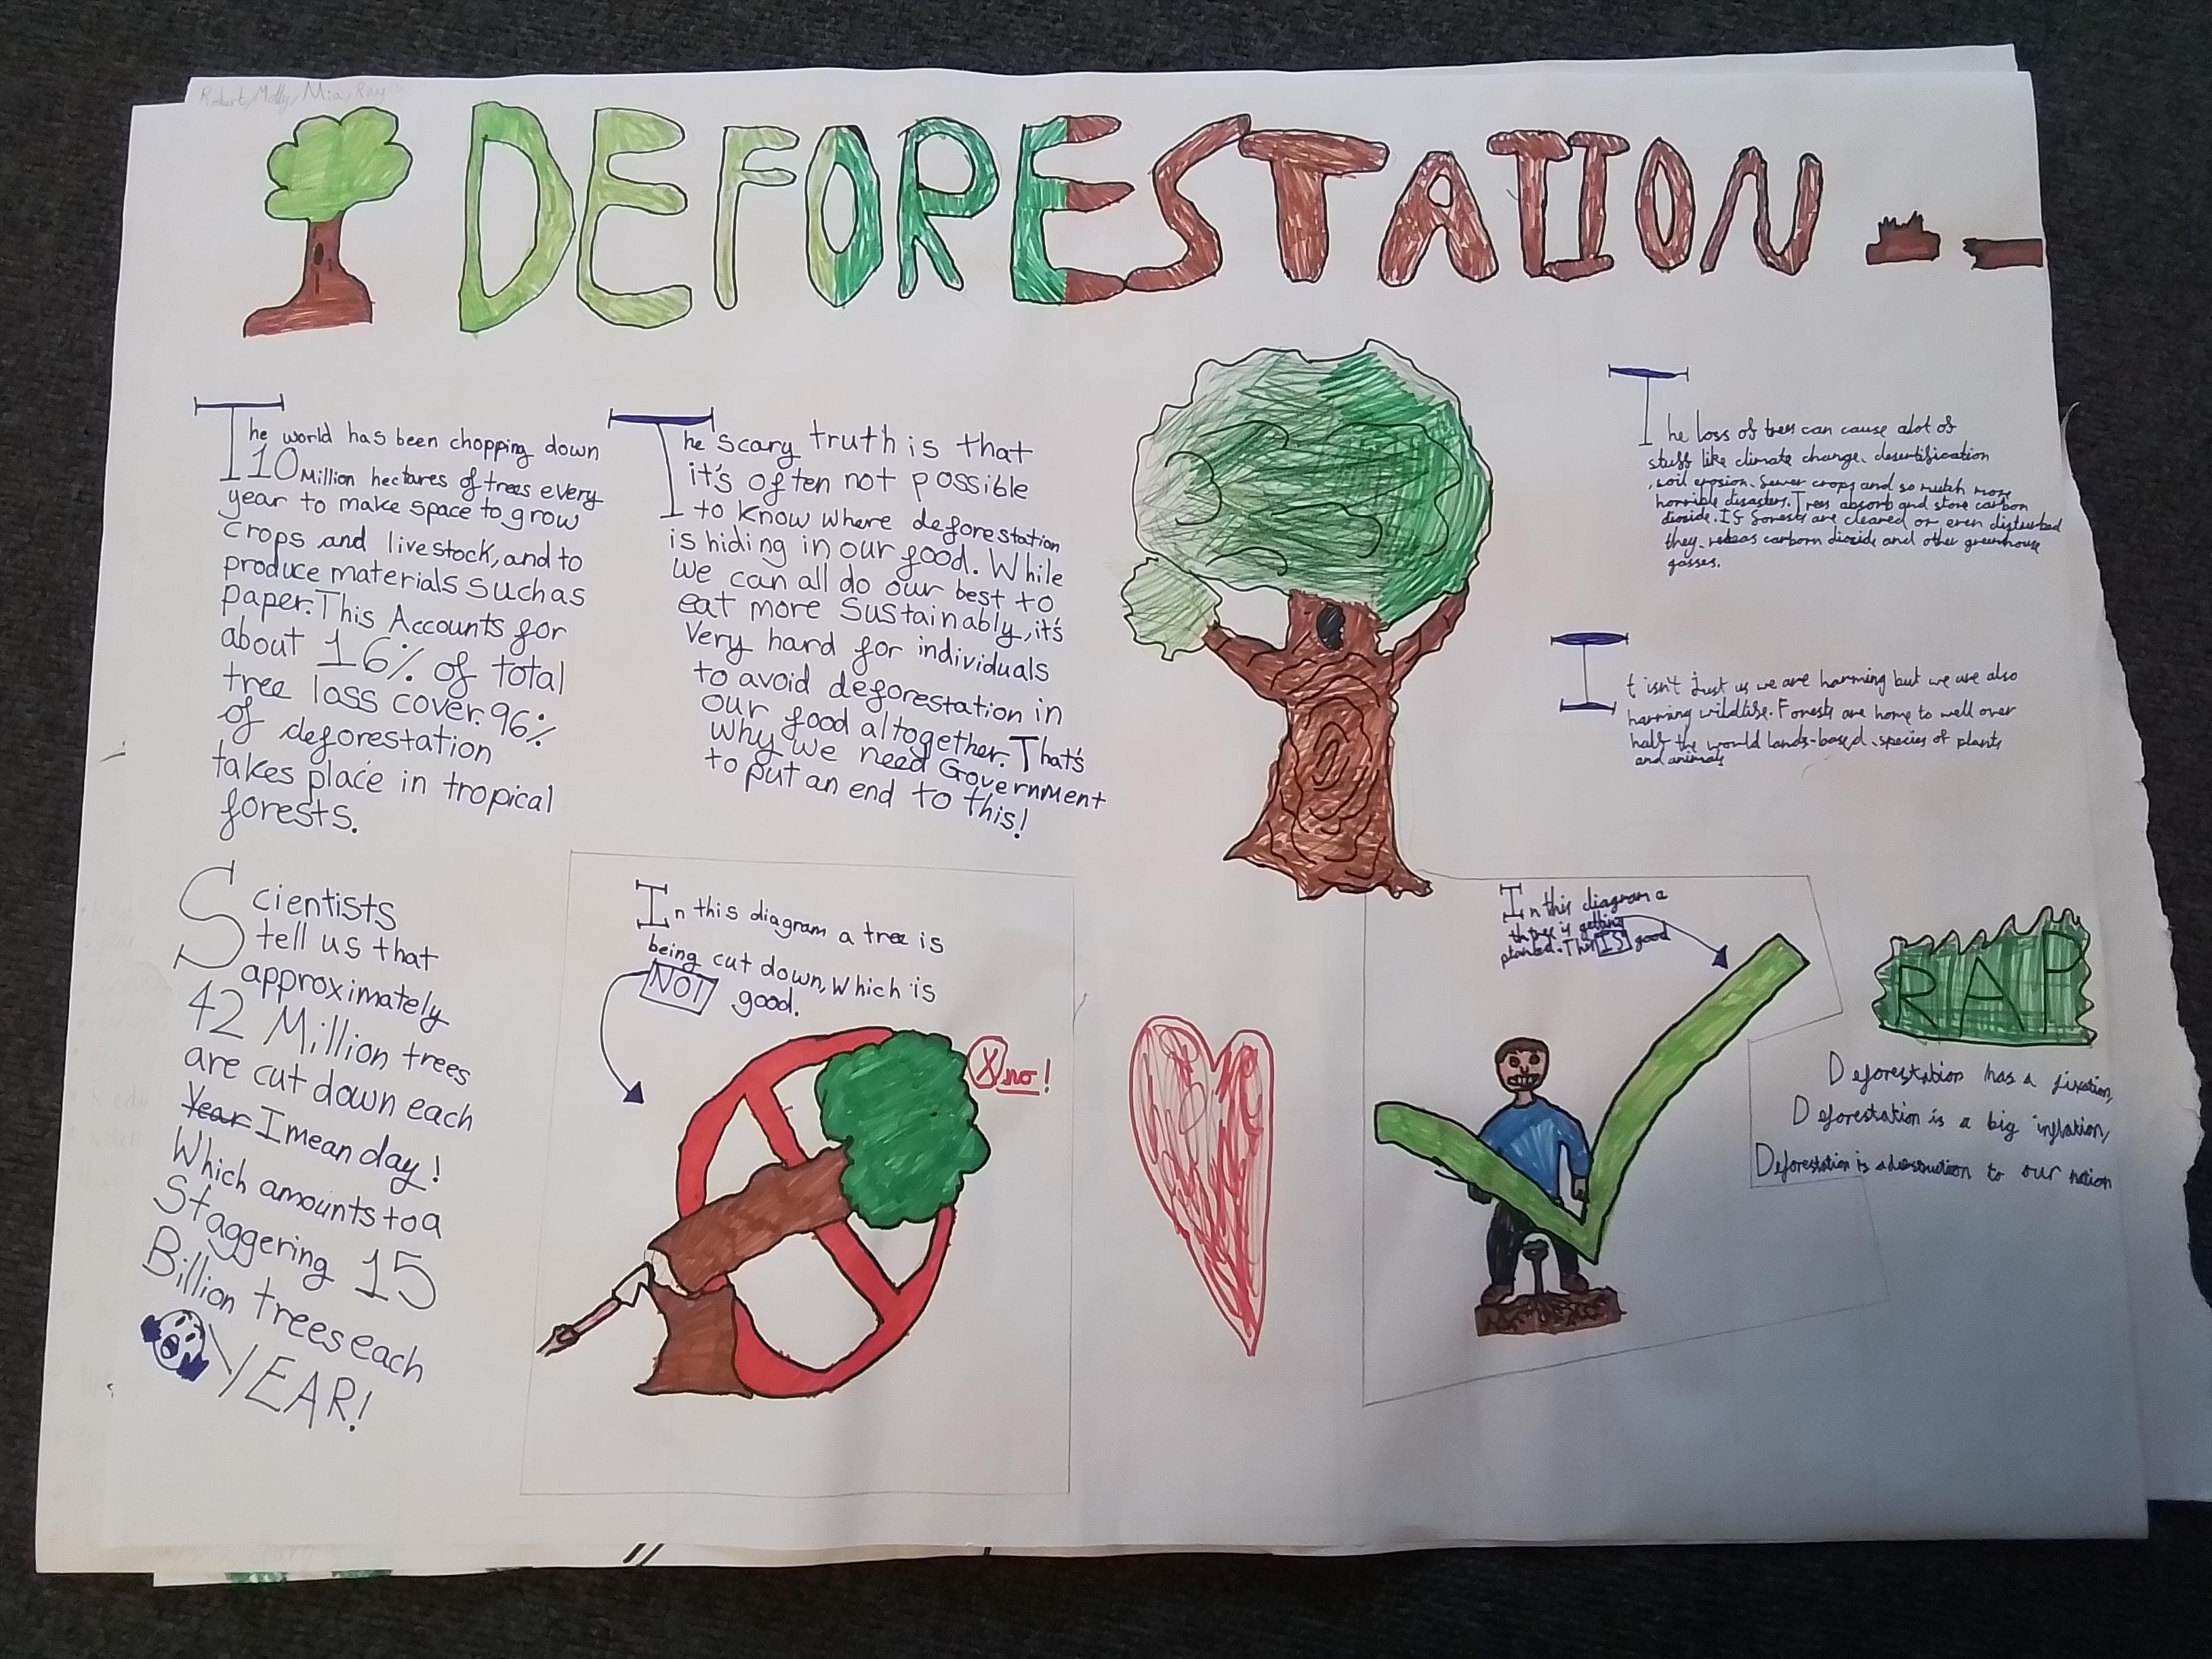 Robert, Molly, Mia, Ray
DEFORESTATION
The world has been chopping down
10 Million hectares of trees every
year to make space to grow
crops and livestock, and to
produce materials such as
paper. This Accounts for
about 16% of total
tree loss cover. 96%
of deforestation
takes place in tropical
forests.
The scary truth is that
it's often not possible
to know where deforestation
is hiding in our food. While
we can all do our best to
eat more Sustainably, it's
very hard for individuals
to avoid deforestation in
our food altogether. That's
Why we need Government
to put an end to this!
The loss of trees can cause alot of
stuff like climate change, desertification
, soil erosion, fewer crops and so mutch more
horrible disasters. Trees absorb and store carbon
dioxide. If forests are cleared or even disturbed
they carborn dioxide and other greenhouse
gasses.
It isn't just us we are harming but we are also
harming wildlife. Forests are home to well over
half the world lands-based species of plants
and animals
Scientists
tell us that
approximately
42 Million trees
are cut down each
Year I mean day!
Which amounts to a
Staggering 15
Billion trees each
YEAR!
In this diagram a tree is
being cut down, which is
NOT good.
X no!
In this diagram a
tree is getting
planted. This IS good
RAP
Deforestation has a fixation,
Deforestation is a big inflation,
Deforestation is a destruction to our nation